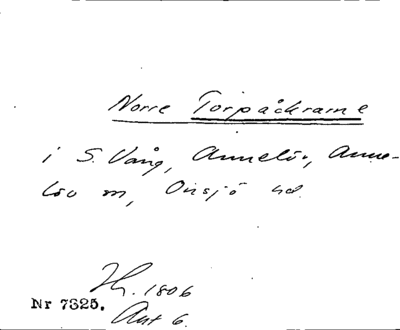 Norre Torpåckrarne
i S. Vång, Annelöv, Anne-
löv m, Onsjö hd.
H. 1806
Nr 7325.
Akt 6.